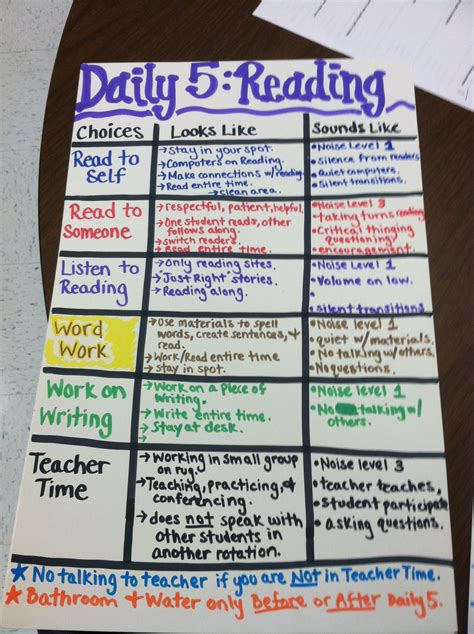 Daily 5: Reading
Choices
Looks Like
Sounds Like
Read to
Self
→Stay in your spot.
→Computers on Reading.
→Make connections w/reading
→Read entire time.
→clean area.
•Noise Level 1
•silence from readers
•Quiet computers.
•Silent transitions.
Read to
Someone
→respectful, patient, helpful.
→One student reads, other
follows along.
→switch readers.
→Read entire time.
•Noise level 3
•taking turns reading
•Critical thinging
questioning
•encouragement.
Listen to
Reading
→only reading sites.
→"Just Right" stories.
→Reading along.
•Noise Level 1
•Volume on low.
•silent transitions
Word
Work
→Use materials to spell
words, create sentences, +
read.
→Work/Read entire time
→stay in spot.
•Noise level 1
•quiet w/materials.
•No talking w/others.
•No questions.
Work on
Writing
→Work on a piece of
Writing.
→Write entire time.
→Stay at desk.
•Noise level 1
•No talking w/
others.
Teacher
Time
→Working in small group
on rug.
→Teaching, practicing, +
conferencing.
→does not speak with
other students in
another rotation.
•Noise level 3
•teacher teaches,
•student participate
•asking questions.
★ No talking to teacher if you are Not in Teacher Time.
★ Bathroom + Water only Before or After Daily 5.